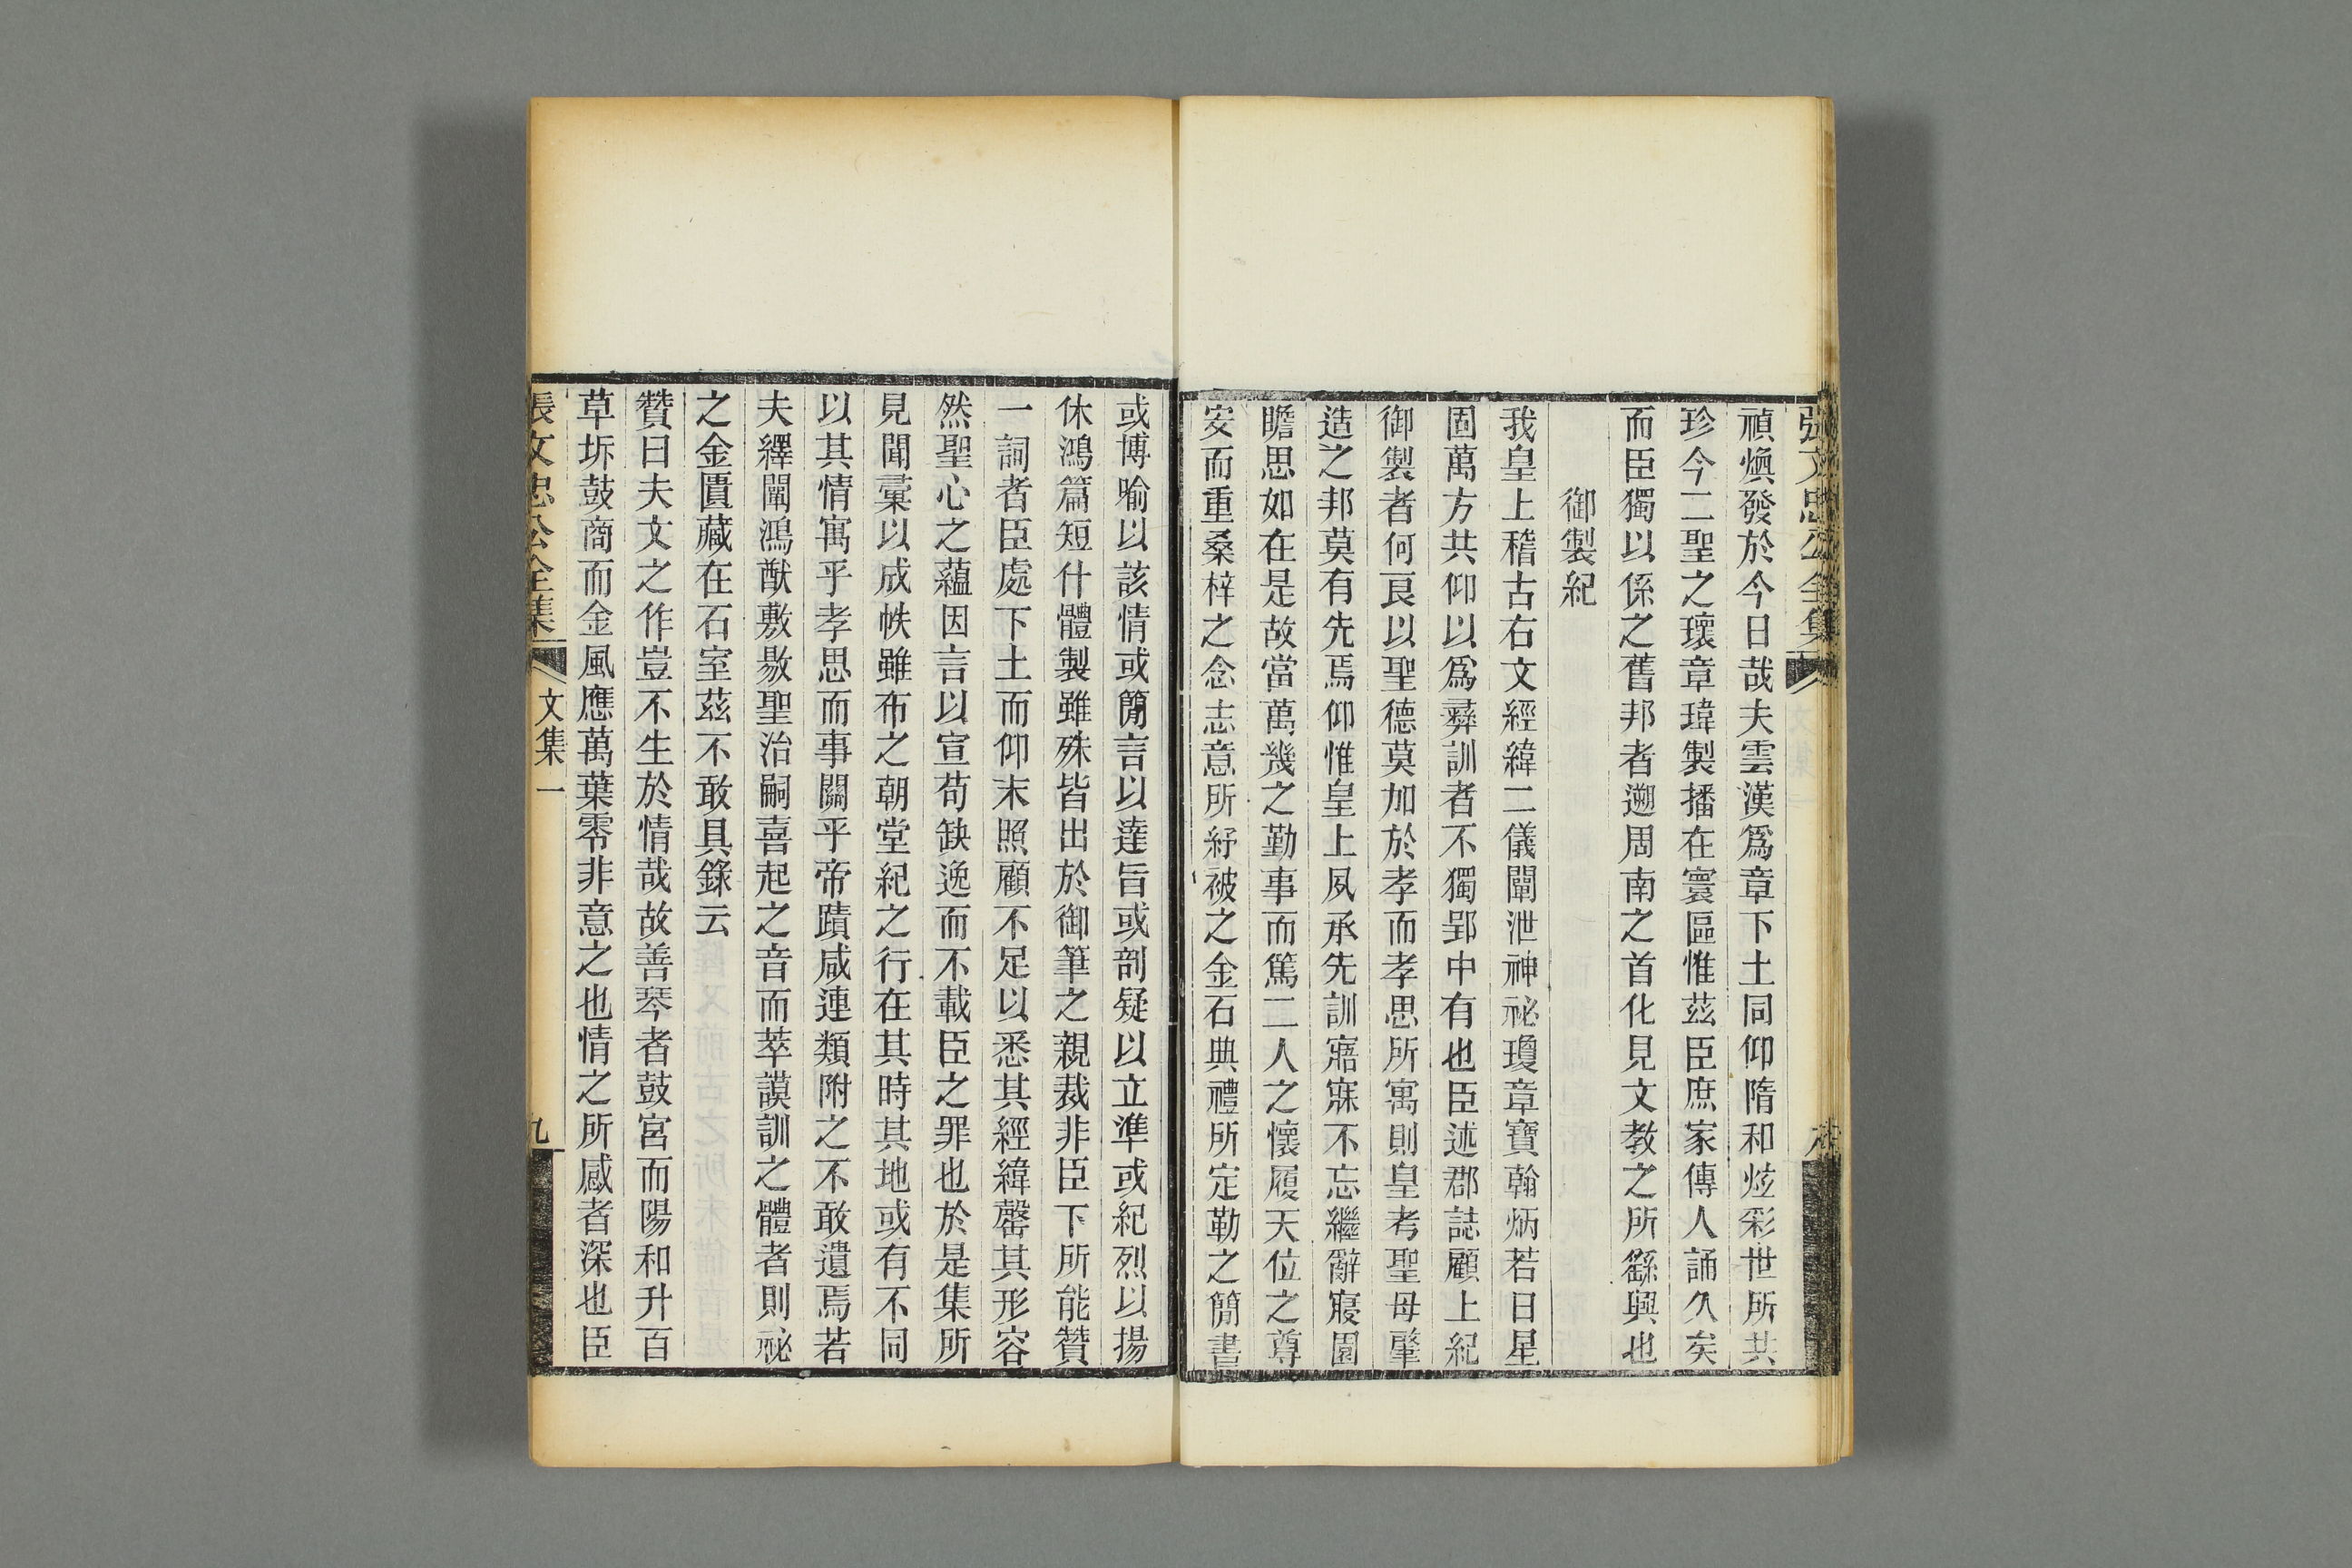 張文忠公全集
禎煥發於今日哉夫雲漢爲章下土同仰隋和炫彩世所共
珍今二聖之瓌章瑋製播在寰區惟茲臣庶家傳人誦久矣
而臣獨以係之舊邦者遡周南之首化見文教之所繇興也
御製紀
我皇上稽古右文經緯二儀闡泄神祕瓊章寶翰炳若日星
固萬方共仰以爲彝訓者不獨郢中有也臣述郡誌顧上紀
御製者何良以聖德莫加於孝而孝思所寓則皇考聖母肇
造之邦莫有先焉仰惟皇上夙承先訓寤寐不忘繼辭寢園
瞻思如在是故當萬幾之勤事而篤二人之懷履天位之尊
安而重桑梓之念志意所紓被之金石典禮所定勒之簡書
或博喻以該情或簡言以達旨或剖疑以立準或紀烈以揚
休鴻篇短什體製雖殊皆出於御筆之親裁非臣下所能贊
一詞者臣處下土而仰末照顧不足以悉其經緯罄其形容
然聖心之蘊因言以宣苟缺逸而不載臣之罪也於是集所
見聞彙以成帙雖布之朝堂紀之行在其時其地或有不同
以其情寓乎孝思而事關乎帝蹟咸連類附之不敢遺焉若
夫繹闡鴻猷敷敭聖治嗣喜起之音而萃謨訓之體者則祕
之金匱藏在石室茲不敢具錄云
贊曰夫文之作豈不生於情哉故善琴者鼓宮而陽和升百
草坼鼓商而金風應萬葉零非意之也情之所感者深也臣
張文忠公全集
文集一
九